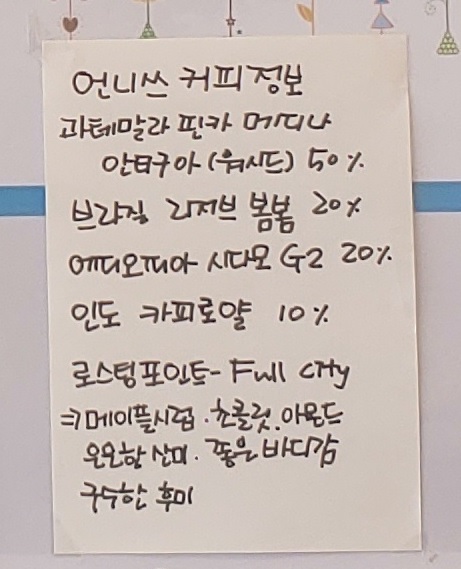 언니쓰 커피정보
과테말라 핀카 메디나
안티구아 (워시드) 50%
브라질 리저브 봄봄 20%
에티오피아 시다모 G2 20%
인도 카피로얄 10%
로스팅포인트- Full City
⇒메이플시럽. 초콜릿. 아몬드
은은한 산미. 좋은 바디감
구수한 후미